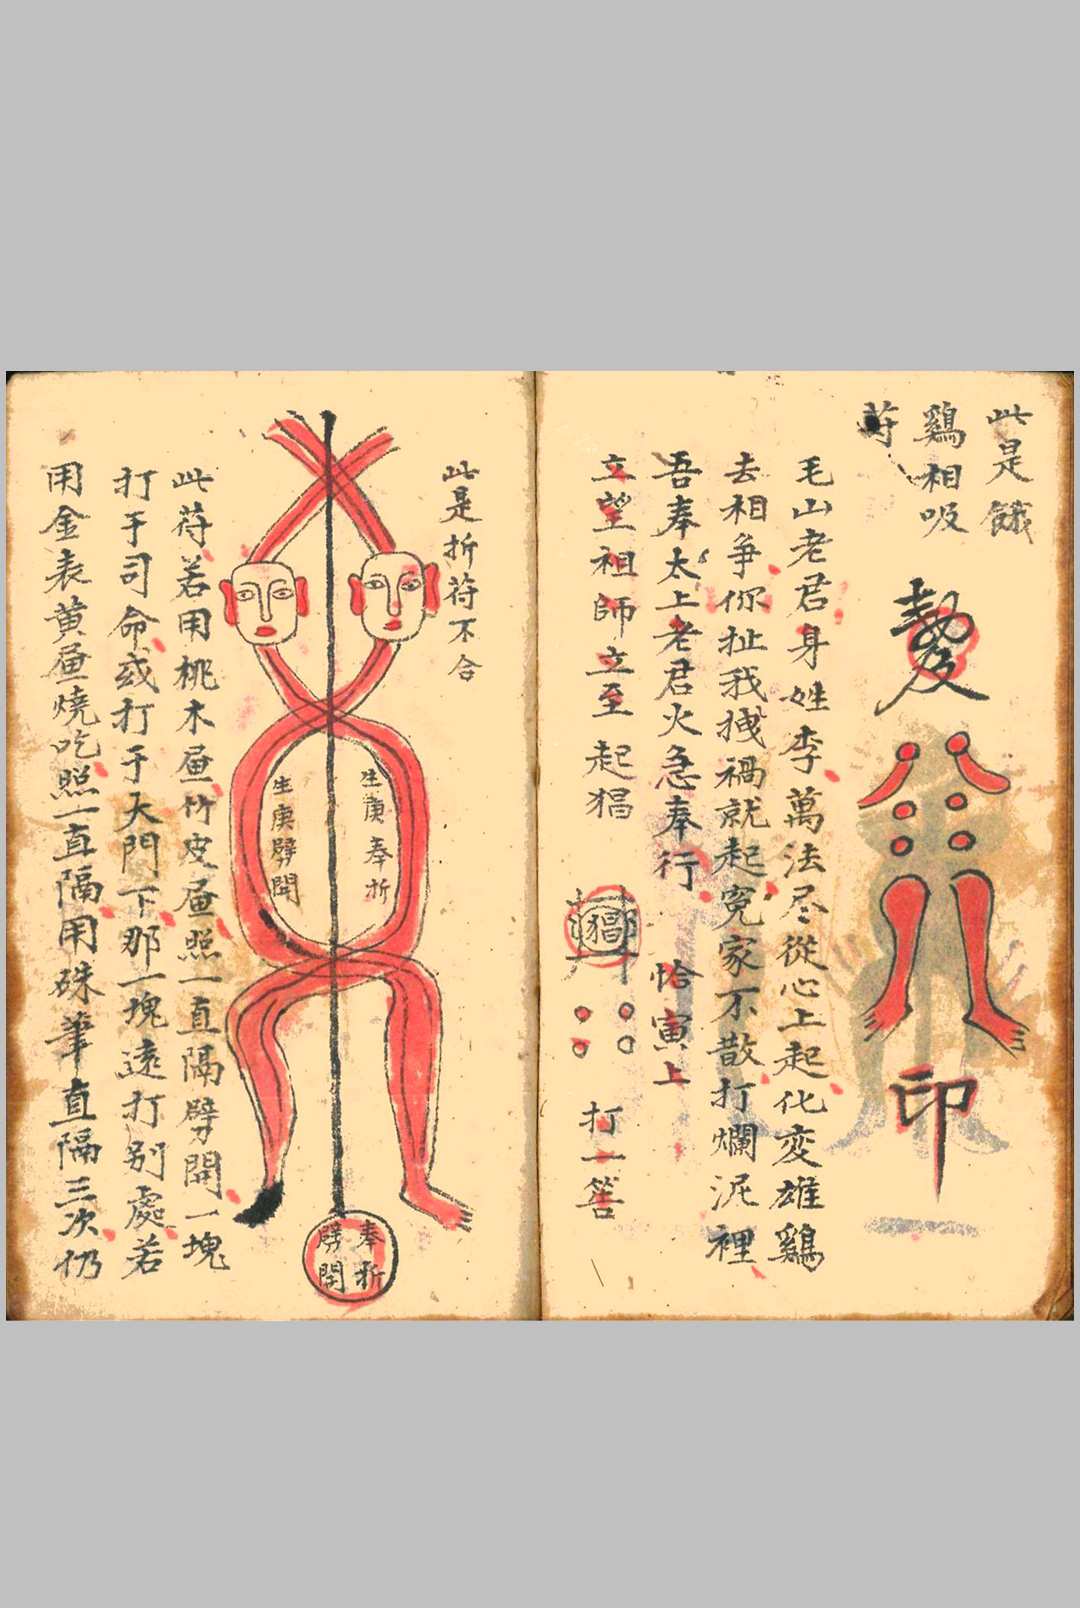 此是餓
鷄相吸
苻
印
毛山老君身姓李萬法尽從心上起化変雄鷄
去相争你扯我搜禍就起冤家不散打爛泥裡
吾奉太上老君火急奉行
恰寅上
立望祖師立至起猖
猖
打一筶
此是折苻不合
生庚奉折
生庚劈開
奉折
劈開
此苻若用桃木㕓竹皮㕓照一直隔劈開一塊
打于司命或打于天門下那一塊遠打别處若
用金表黄㕓燒吃照一直隔用硃筆直隔三次仍